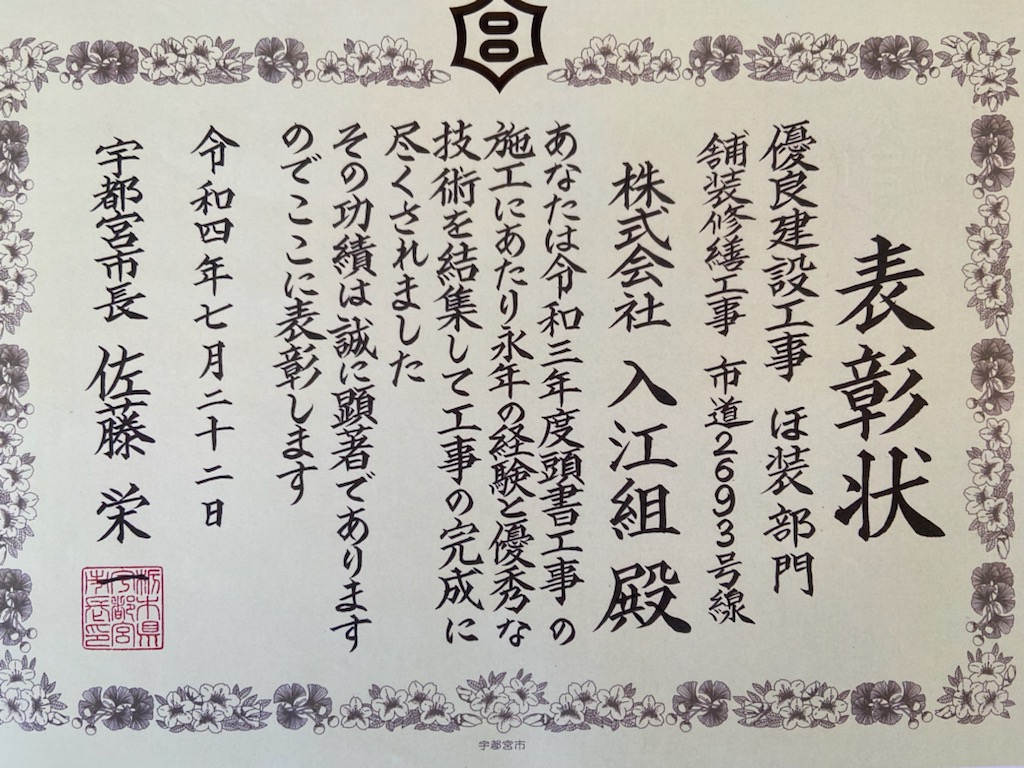 表彰状
優良建設工事 ほ装部門
舗装修繕工事 市道2693号線
株式会社 入江組 殿
あなたは令和三年度頭書工事の
施工にあたり永年の経験と優秀な
技術を結集して工事の完成に
尽くされました
その功績は誠に顕著であります
のでここに表彰します
令和四年七月二十二日
宇都宮市長 佐藤 栄一
栃木県
宇都宮
市長印
宇都宮市